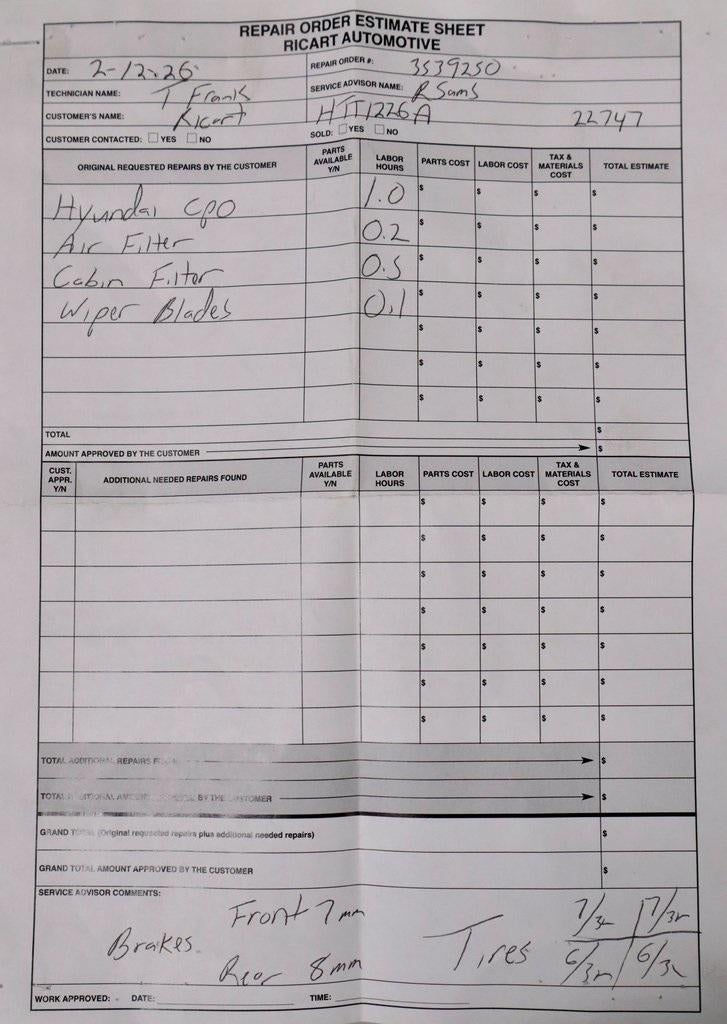 REPAIR ORDER ESTIMATE SHEET
RICART AUTOMOTIVE
DATE: 2-12-26 REPAIR ORDER #: 3539250
TECHNICIAN NAME: T Frank SERVICE ADVISOR NAME: R Sams
CUSTOMER'S NAME: Ricart HTT1226A 22747
CUSTOMER CONTACTED: YES NO SOLD: YES NO
ORIGINAL REQUESTED REPAIRS BY THE CUSTOMER PARTS AVAILABLE Y/N LABOR HOURS PARTS COST LABOR COST TAX & MATERIALS COST TOTAL ESTIMATE
Hyundai CPO 1.0 $ $ $ $
Air Filter 0.2 $ $ $ $
Cabin Filter 0.5 $ $ $ $
Wiper Blades 0.1 $ $ $ $
$ $ $ $
$ $ $ $
$ $ $ $
TOTAL $
AMOUNT APPROVED BY THE CUSTOMER $
CUST. APPR. Y/N ADDITIONAL NEEDED REPAIRS FOUND PARTS AVAILABLE Y/N LABOR HOURS PARTS COST LABOR COST TAX & MATERIALS COST TOTAL ESTIMATE
$ $ $ $
$ $ $ $
$ $ $ $
$ $ $ $
$ $ $ $
$ $ $ $
$ $ $ $
TOTAL ADDITIONAL REPAIRS $
TOTAL ADDITIONAL AMOUNT BY THE CUSTOMER $
GRAND TOTAL (Original requested repairs plus additional needed repairs) $
GRAND TOTAL AMOUNT APPROVED BY THE CUSTOMER $
SERVICE ADVISOR COMMENTS:
Front 7mm 7/32 7/32
Brakes Tires
Rear 8mm 6/32 6/32
WORK APPROVED: - DATE: TIME: